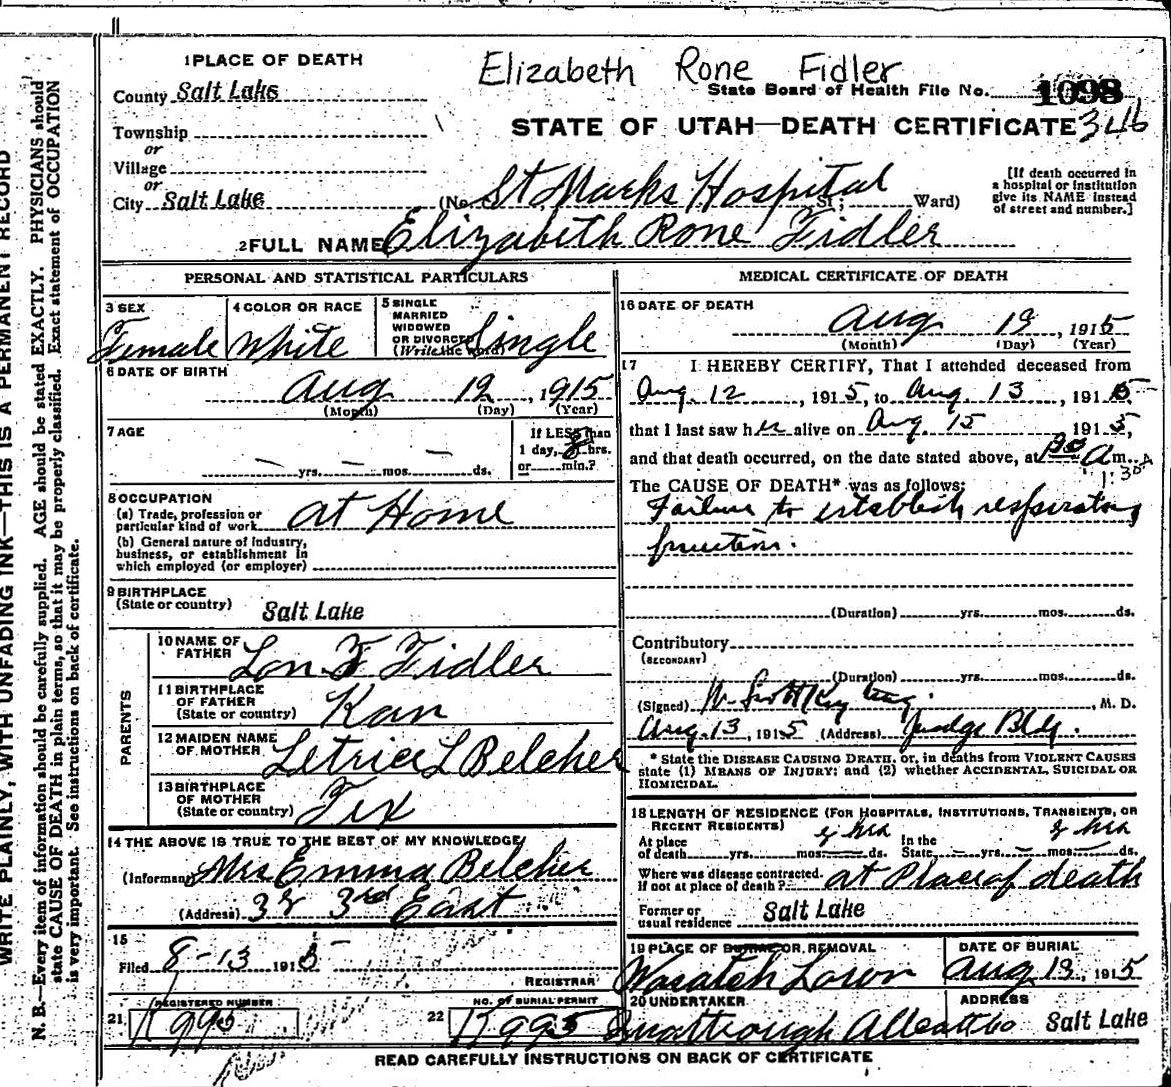 WRITE PLAINLY, WITH UNFADING INK—THIS IS A PERMANENT RECORD
N. B.—Every item of information should be carefully supplied. AGE should be stated EXACTLY. PHYSICIANS should
state CAUSE OF DEATH in plain terms, so that it may be properly classified. Exact statement of OCCUPATION
is very important. See instructions on back of certificate.
Elizabeth Rone Fidler
1 PLACE OF DEATH
County Salt Lake
State Board of Health File No. 1098
Township
STATE OF UTAH—DEATH CERTIFICATE 346
or
Village
or
City Salt Lake (No. St Marks Hospital St; Ward)
[If death occurred in
a hospital or institution
give its NAME instead
of street and number.]
2 FULL NAME Elizabeth Rone Fidler
PERSONAL AND STATISTICAL PARTICULARS
3 SEX
Female
4 COLOR OR RACE
White
5 SINGLE
MARRIED
WIDOWED
OR DIVORCED
(Write the word)
Single
6 DATE OF BIRTH
Aug 12, 1915
(Month) (Day) (Year)
7 AGE
yrs. mos. ds.
If LESS than
1 day, hrs.
or min.?
8 OCCUPATION
(a) Trade, profession or
particular kind of work
at Home
(b) General nature of industry,
business, or establishment in
which employed (or employer)
9 BIRTHPLACE
(State or country) Salt Lake
PARENTS
10 NAME OF
FATHER Lon F Fidler
11 BIRTHPLACE
OF FATHER
(State or country) Kan
12 MAIDEN NAME
OF MOTHER Letrice L Belcher
13 BIRTHPLACE
OF MOTHER
(State or country) Tex
14 THE ABOVE IS TRUE TO THE BEST OF MY KNOWLEDGE
(Informant) Mrs Emma Belcher
(Address) 3rd East
15
Filed 8-13 1915
REGISTRAR
21 REGISTERED NUMBER
K995
22 NO. OF BURIAL PERMIT
K995
MEDICAL CERTIFICATE OF DEATH
16 DATE OF DEATH
Aug 13, 1915
(Month) (Day) (Year)
17 I HEREBY CERTIFY, That I attended deceased from
Aug. 12, 1915, to Aug. 13, 1915,
that I last saw her alive on Aug. 1915,
and that death occurred, on the date stated above, at A m.
1:30
The CAUSE OF DEATH* was as follows:
Failure to establish respiratory
function.
(Duration) yrs. mos. ds.
Contributory
(SECONDARY)
(Duration) yrs. mos. ds.
(Signed) M. D.
Aug. 13, 1915 (Address) Judge Bldg.
* State the DISEASE CAUSING DEATH, or, in deaths from VIOLENT CAUSES
state (1) MEANS OF INJURY; and (2) whether ACCIDENTAL, SUICIDAL OR
HOMICIDAL.
18 LENGTH OF RESIDENCE (FOR HOSPITALS, INSTITUTIONS, TRANSIENTS, OR
RECENT RESIDENTS)
At place of death yrs. mos. ds. hrs In the State yrs. mos. ds. hrs
Where was disease contracted,
if not at place of death? at Place of death
Former or
usual residence Salt Lake
19 PLACE OF BURIAL OR REMOVAL
Wasatch Lawn
DATE OF BURIAL
Aug 13, 1915
20 UNDERTAKER
ADDRESS
Salt Lake
READ CAREFULLY INSTRUCTIONS ON BACK OF CERTIFICATE